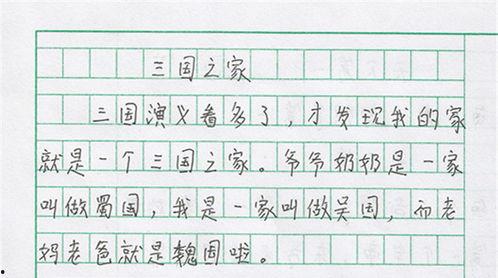 三国之家
三国演义看多了，才发现我的家
就是一个三国之家。爷爷奶奶是一家
叫做蜀国，我是一家叫做吴国，而老
妈老爸就是魏国啦。